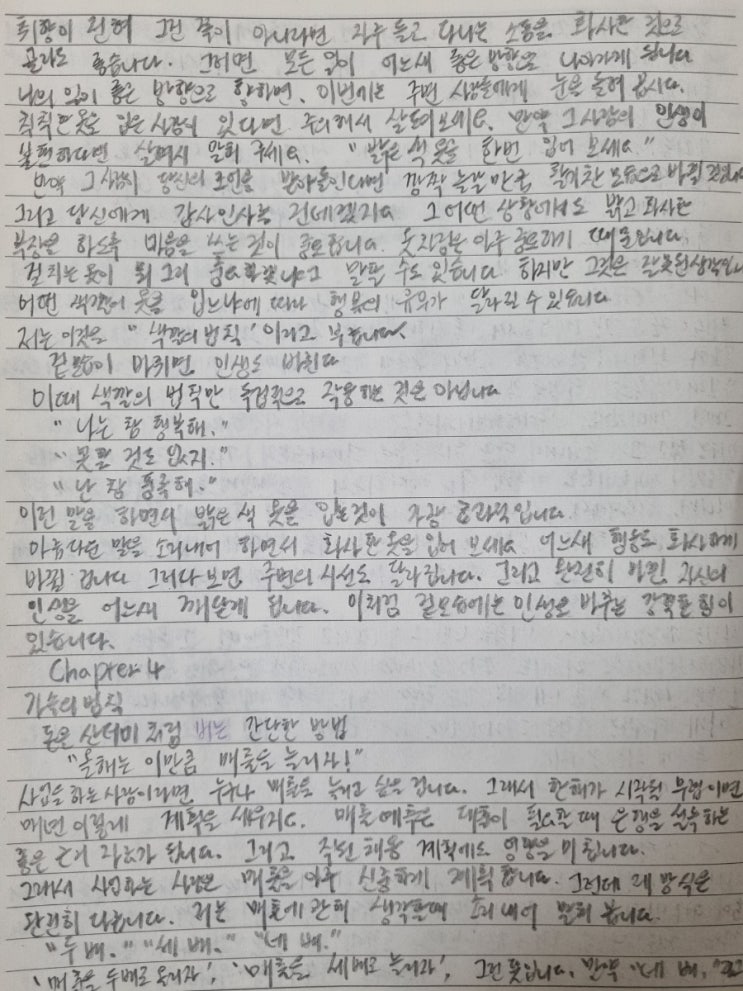 취향이 전혀 그런 쪽이 아니라면 자주 들고 다니는 소품을 화사한 것으로
골라도 좋습니다. 그러면 모든 일이 어느새 좋은 방향으로 나아가게 됩니다
나의 일이 좋은 방향으로 향하면, 이번에는 주변 사람들에게 눈을 돌려 봅시다.
칙칙한 옷을 입는 사람이 있다면 주의해서 살펴보세요. 만약 그 사람의 인생이
불편하다면 살며시 말해 주세요. "밝은 색 옷을 한번 입어 보세요"
만약 그 사람이 당신의 조언을 받아들인다면 깜짝 놀랄 만큼 활기찬 모습으로 바뀔 것입니다
그리고 당신에게 감사인사를 건네겠지요 그 어떤 상황에서도 밝고 화사한
복장을 하도록 마음을 쓰는 것이 중요합니다. 옷차림은 아주 중요하기 때문입니다.
걸치는 옷이 뭐 그리 중요하겠냐고 말할 수도 있습니다 하지만 그것은 잘못된 생각입니다
어떤 색깔의 옷을 입느냐에 따라 행복의 유무가 달라질 수 있습니다
저는 이것을 "색깔의 법칙"이라고 부릅니다.
겉모습이 바뀌면 인생도 바뀐다
이때 색깔의 법칙만 독립적으로 작용하는 것은 아닙니다
"나는 참 행복해."
"못할 것도 없지."
"난 참 풍족해."
이런 말을 하면서 밝은 색 옷을 입는것이 가장 효과적입니다
아름다운 말을 소리내어 하면서 화사한 옷을 입어 보세요 어느새 행동도 화사하게
바뀔 겁니다 그러다 보면 주변의 시선도 달라집니다. 그리고 완전히 바뀐 자신의
인생을 어느새 깨닫게 됩니다. 이처럼 겉모습에는 인생을 바꾸는 강력한 힘이
있습니다.
Chapter 4
가속의 법칙
돈을 산더미처럼 버는 간단한 방법
"올해는 이만큼 매출을 늘리자!"
사업을 하는 사람이라면 누구나 매출을 늘리고 싶을 겁니다. 그래서 한해가 시작될 무렵이면
매년 이렇게 계획을 세우지요. 매출 예측은 대출이 필요할 때 은행을 설득하는
좋은 근거 자료가 됩니다. 그리고 직원 채용 계획에도 영향을 미칩니다.
그래서 사업하는 사람은 매출을 아주 신중하게 계획합니다. 그런데 제 방식은
완전히 다릅니다. 저는 매출에 관해 생각할때 소리내어 말해 봅니다.
"두 배." "세 배." "네 배."
'매출을 두배로 올리자', '매출을 세배로 늘리자', 그런 뜻입니다. 만약 "네 배."